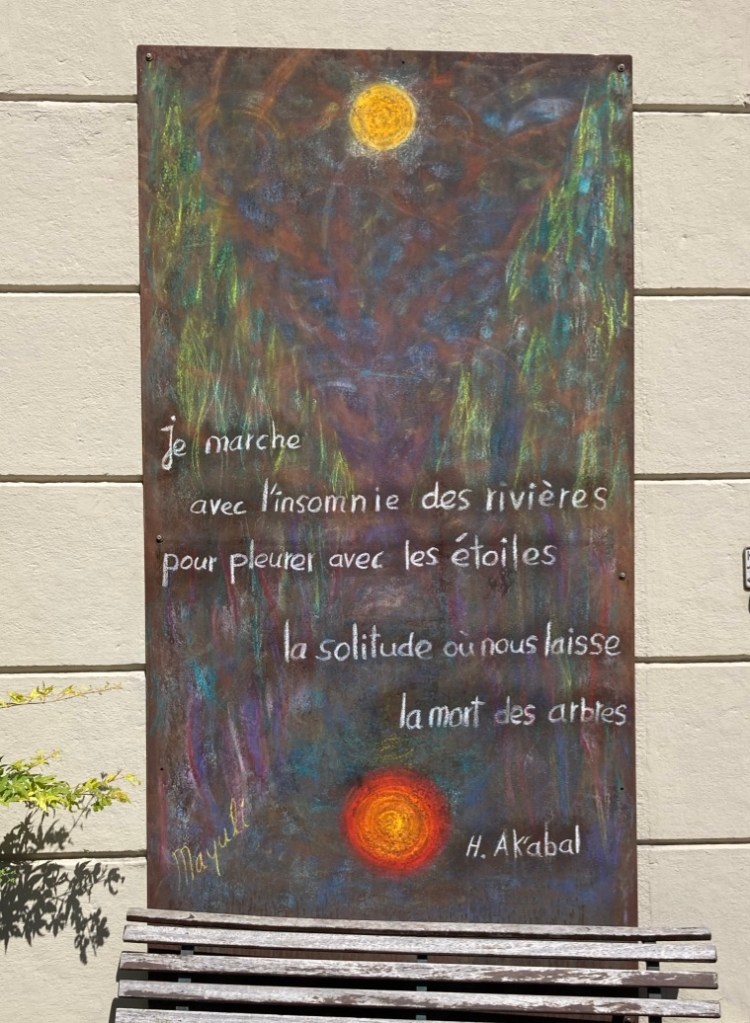 je marche
avec l'insomnie des rivières
pour pleurer avec les étoiles
la solitude où nous laisse
la mort des arbres
H. Ak'abal
Mayulí